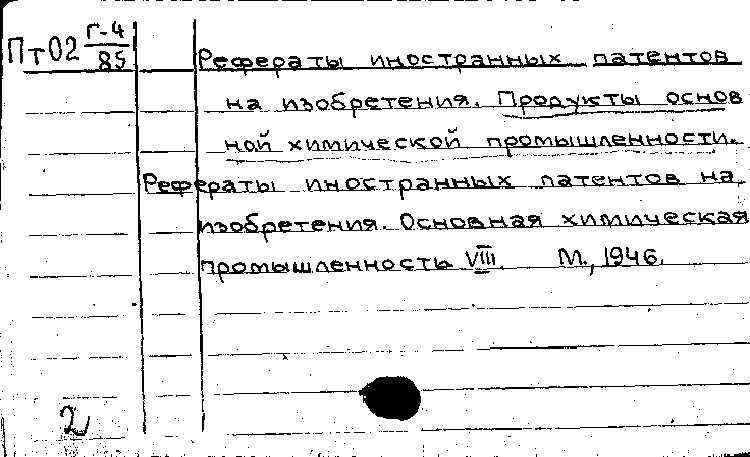 Пт02 Г-4/85
Рефераты иностранных патентов
на изобретения. Продукты основ
ной химической промышленности.
Рефераты иностранных патентов на
изобретения. Основная химическая
промышленность VIII. М., 1946.
2